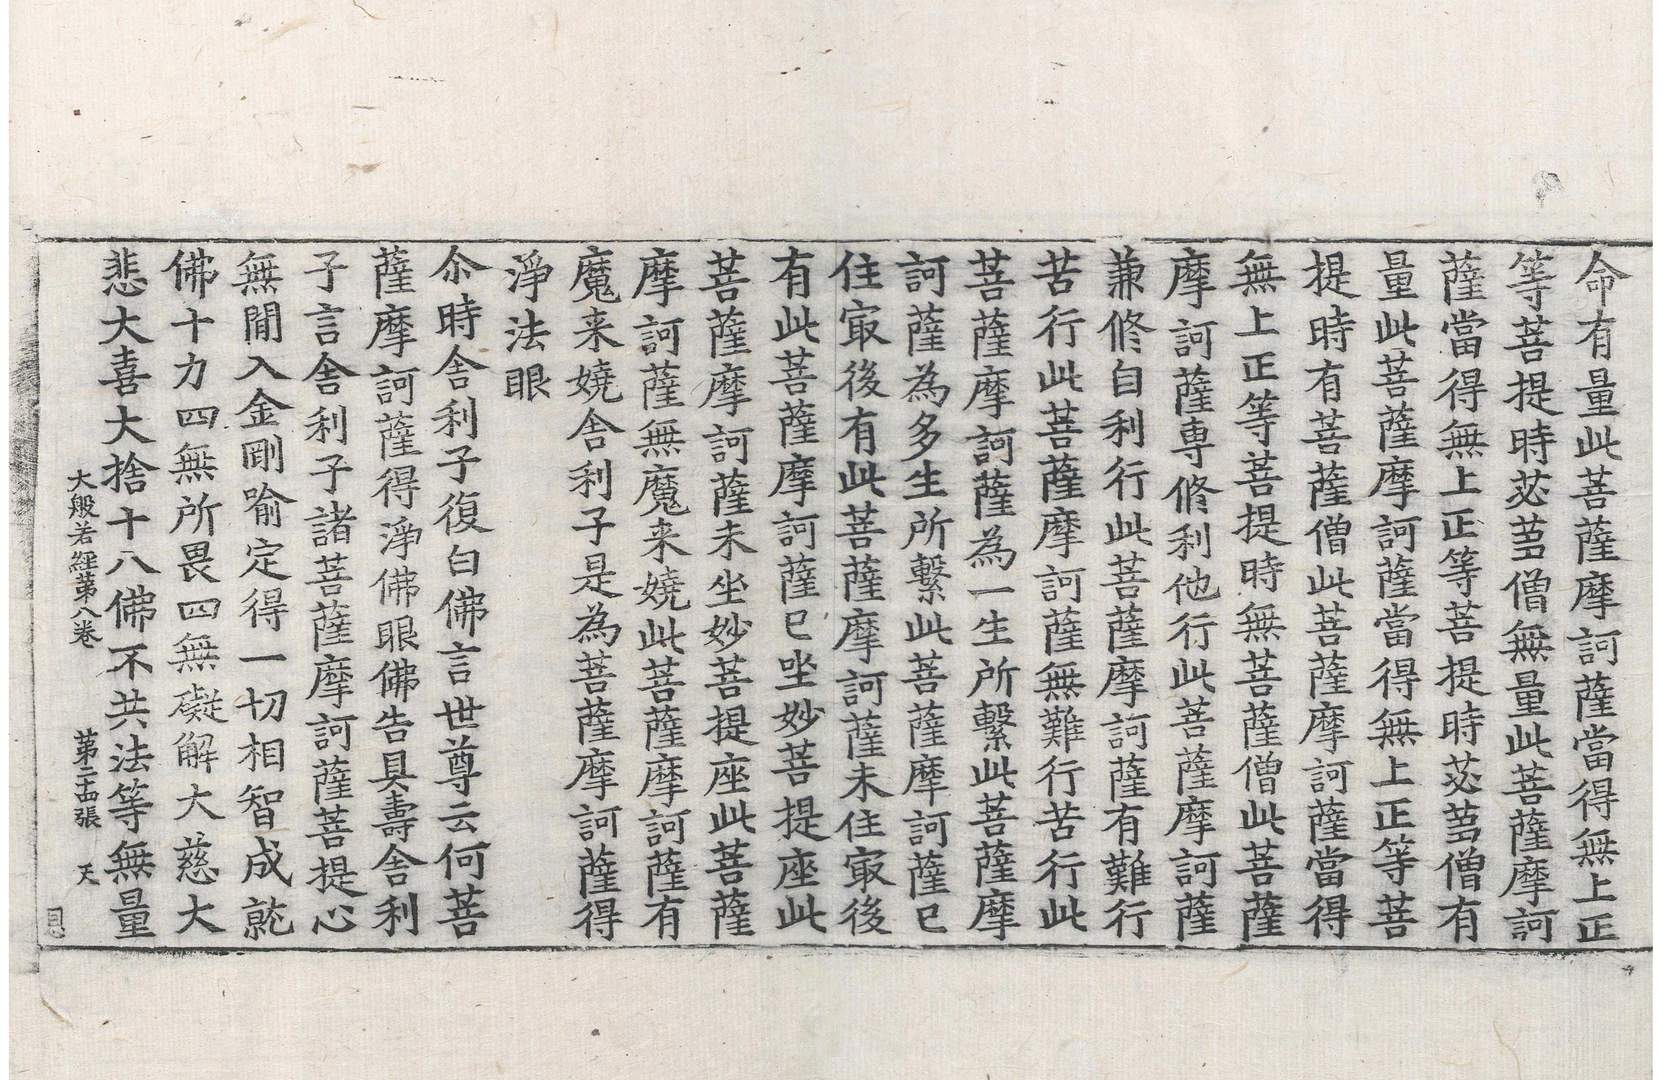 命有量此菩薩摩訶薩當得無上正
等菩提時苾蒭僧無量此菩薩摩訶
薩當得無上正等菩提時苾蒭僧有
量此菩薩摩訶薩當得無上正等菩
提時有菩薩僧此菩薩摩訶薩當得
無上正等菩提時無菩薩僧此菩薩
摩訶薩專修利他行此菩薩摩訶薩
兼修自利行此菩薩摩訶薩有難行
苦行此菩薩摩訶薩無難行苦行此
菩薩摩訶薩為一生所繫此菩薩摩
訶薩為多生所繫此菩薩摩訶薩已
住㝡後有此菩薩摩訶薩未住㝡後
有此菩薩摩訶薩已坐妙菩提座此
菩薩摩訶薩未坐妙菩提座此菩薩
摩訶薩無魔来嬈此菩薩摩訶薩有
魔来嬈舍利子是為菩薩摩訶薩得
淨法眼
尒時舍利子復白佛言世尊云何菩
薩摩訶薩得淨佛眼佛告具壽舍利
子言舍利子諸菩薩摩訶薩菩提心
無間入金剛喻定得一切相智成就
佛十力四無所畏四無礙解大慈大
悲大喜大捨十八佛不共法等無量
大般若經第八卷 第二十四張 天